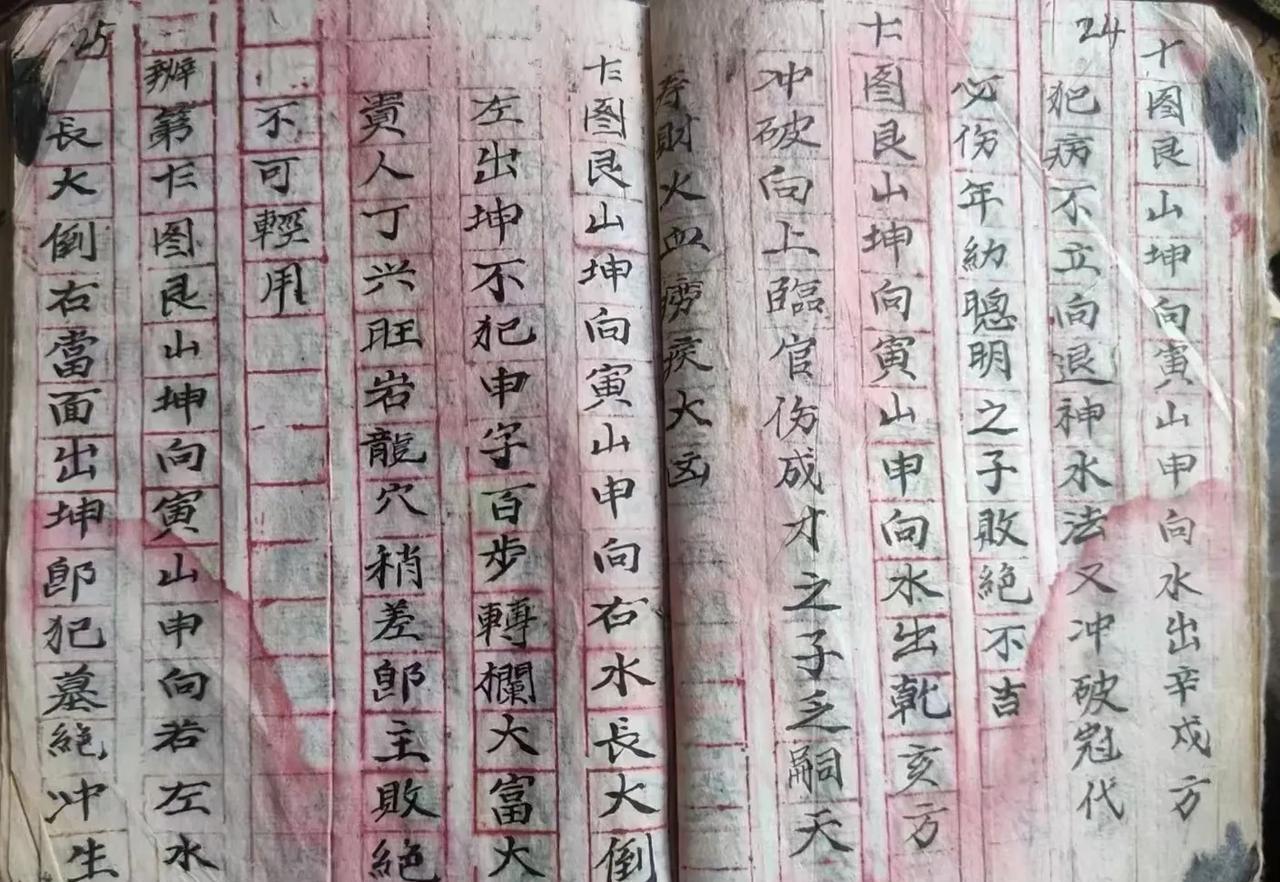 24
十图艮山坤向寅山申向水出辛戌方
犯病不立向退神水法又冲破冠代
必伤年幼聰明之子敗絕不吉
十一图艮山坤向寅山申向水出乾亥方
冲破向上臨官伤成才之子乏嗣夭
寿財火血痨疾大凶
25
十二图艮山坤向寅山申向右水長大倒
左出坤不犯申字百步轉欄大富大
貴人丁兴旺岩龍穴稍差郎主敗絕
不可輕用
辦第十二图艮山坤向寅山申向若左水
長大倒右當面出坤郎犯墓絕冲生